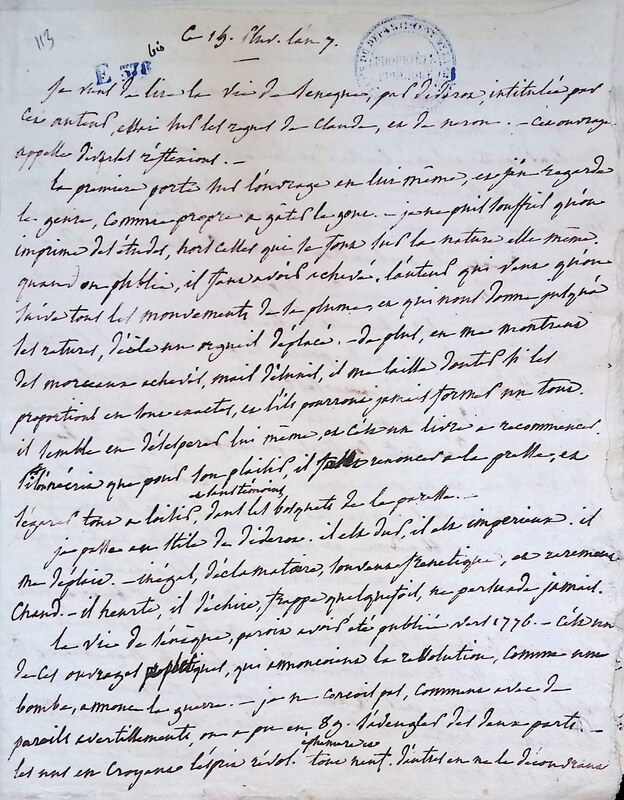 113
Ce 19. Pluv. l'an 7.
E 378 bis
PROPRIÉTÉ
PUBLIQUE
Je viens de lire la vie de Seneque, par diderot, intitulée par
cet auteur, essai sur les regnes de Claude, et de neron. — Cet ouvrage
appelle diverses réflexions. —
la premiere porte sur l'ouvrage en lui même, et j'en regarde
le genre, comme propre a gâter le gout. — je ne puis souffrir qu'on
imprime des études, hors celles qui se font sur la nature elle même.
quand on publie, il faut avoir achevé. l'auteur qui veut qu'on
suive tous les mouvements de sa plume, et qui nous donne jusqu'a
ses ratures, décèle un orgueil déplacé. — de plus, en me montrant
des morceaux achevés, mais désunis, il me laisse douter si les
proportions en sont exactes, et s'ils pourront jamais former un tout.
il semble en désespérer lui même, et c'est un livre a recommencer.
si l'on n'écrit que pour son plaisir, il faut renoncer a la presse, et
s'égarer tout a loisir, et sans témoins, dans les bosquets de la paresse. —
je passe au stile de diderot. il est dur, il est imperieux. il
me déplait. — inégal, déclamatoire, souvent frenetique, et rarement
chaud. — il heurte, il déchire, frappe quelquefois, ne persuade jamais.
la vie de Sénèque, paroit avoir été publiée vers 1776. — C'est un
de ces ouvrages qui annoncoient la révolution, comme une
bombe, annonce la guerre. — je ne concois pas, comment avec de
pareils avertissements, on a pu en 89. s'aveugler des deux parts. —
les uns en croyant l'esprit révol. éphémère et tout neuf. d'autres en ne le découvrant